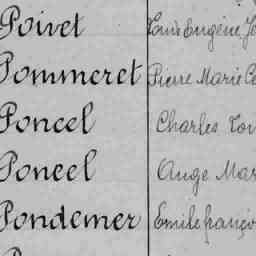 Poivet Louis Eugène Je
Pommeret Pierre Marie Ce
Poncel Charles Lou
Poncel Ange Mar
Pondemer Emile franço